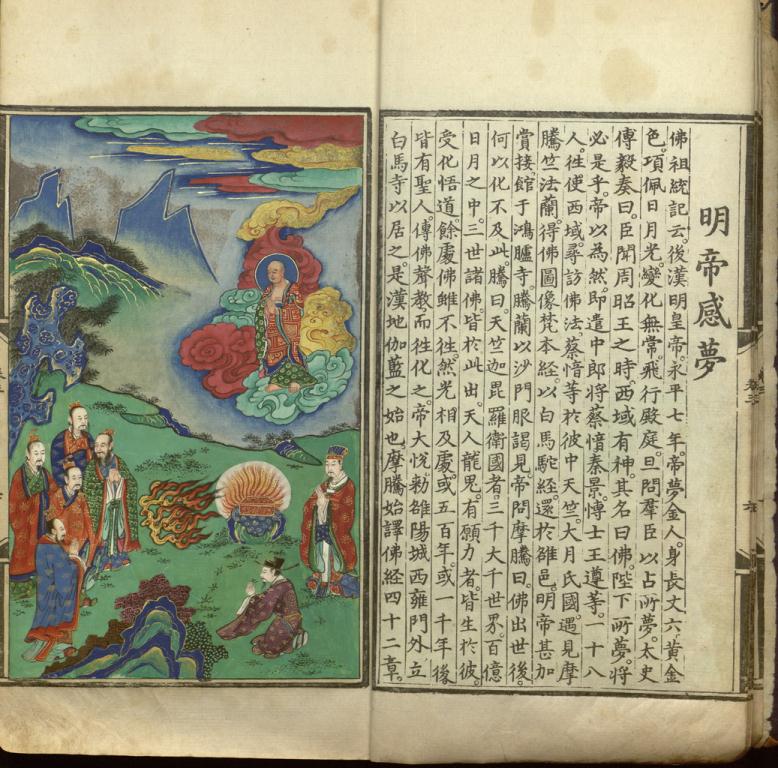 明帝感夢
佛祖統記云。後漢明皇帝。永平七年。帝夢金人。身長丈六。黃金
色。項佩日月光。變化無常。飛行殿庭。旦問羣臣。以占所夢。太史
傅毅奏曰。臣聞周昭王之時。西域有神。其名曰佛。陛下所夢。將
必是乎。帝以為然。即遣中郎將蔡愔秦景。博士王遵等。一十八
人。徃使西域。尋訪佛法。蔡愔等於彼中天竺。大月氏國。遇見摩
騰竺法蘭。得佛圖像梵本經。以白馬駝經。還於雒邑。明帝甚加
賞接。館于鴻臚寺。騰蘭以沙門服謁見。帝問摩騰曰。佛出世後。
何以化不及此。騰曰。天竺迦毘羅衛國者。三千大千世界。百億
日月之中。三世諸佛。皆於此出。天人龍鬼。有願力者。皆生於彼。
受化悟道。餘處佛雖不徃。然光相及處。或五百年。或一千年後
皆有聖人。傳佛聲教。而徃化之。帝大悅。勅雒陽城西雍門外立
白馬寺以居之。是漢地伽藍之始也。摩騰始譯佛經四十二章。